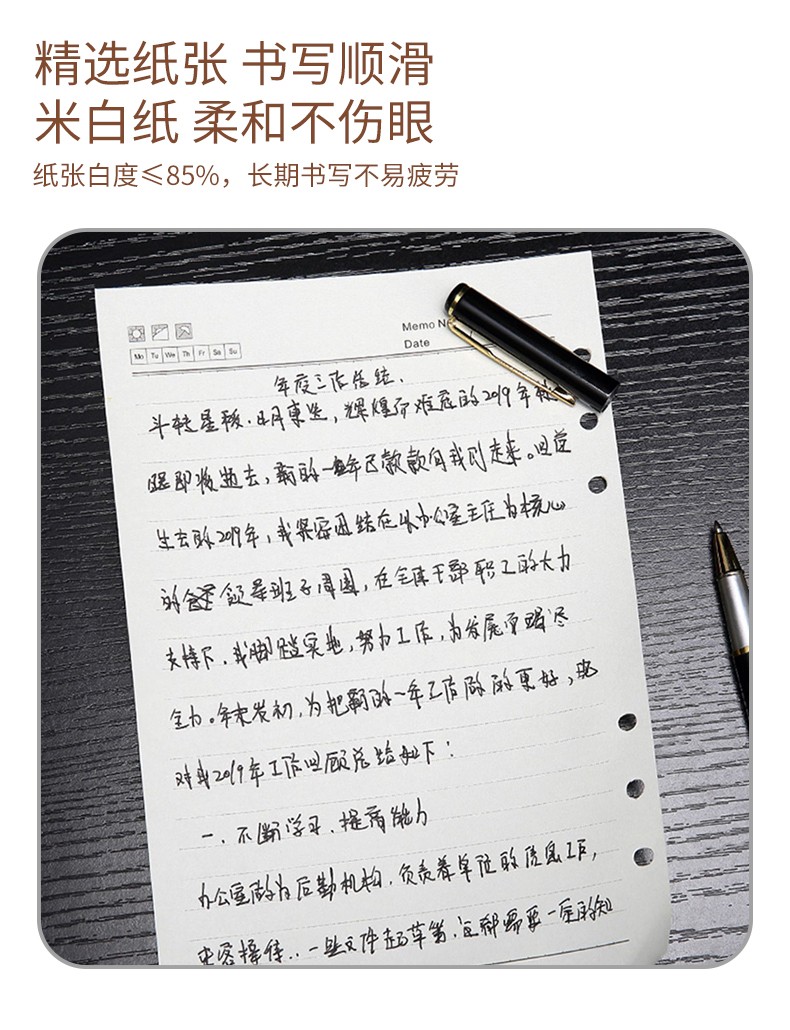 精选纸张 书写顺滑
米白纸 柔和不伤眼
纸张白度≤85%，长期书写不易疲劳
Memo
Date
Mo Tu We Th Fr Sa Su
年度工作总结.
斗转星移.日月更迭，辉煌而难忘的2019年
眼即将逝去，新的一年已款款向我们走来。回首
过去的2019年，我紧密团结在以办公室主任为核心
的 领导班子周围，在全体干部职工的大力
支持下，我脚踏实地，努力工作，为发展而竭尽
全力。年末岁初，为把新的一年工作做的更好，现
对我2019年工作回顾总结如下：
一、不断学习、提高能力
办公室做为后勤机构，负责着单位的信息工作，
来客接待..一些文件起草等.这都需要一定的知